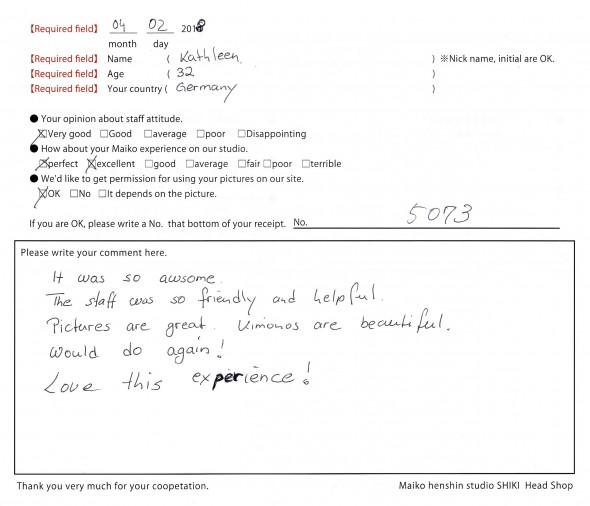 【Required field】 04 02 2018
month day
【Required field】 Name ( Kathleen ) ※Nick name, initial are OK.
【Required field】 Age ( 32 )
【Required field】 Your country ( Germany )
● Your opinion about staff attitude.
☒Very good □Good □average □poor □Disappointing
● How about your Maiko experience on our studio.
☒perfect ☒excellent □good □average □fair □poor □terrible
● We'd like to get permission for using your pictures on our site.
☒OK □No □It depends on the picture.
If you are OK, please write a No. that bottom of your receipt. No. 5073
Please write your comment here.
It was so awsome.
The staff was so friendly and helpful.
Pictures are great. Kimonos are beautiful.
Would do again!
Love this experience!
Thank you very much for your coopetation. Maiko henshin studio SHIKI Head Shop